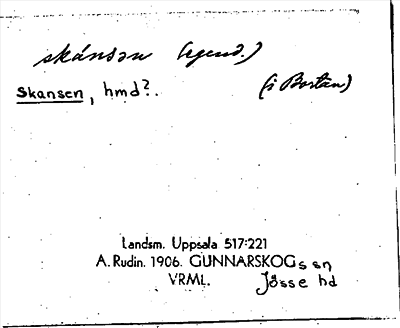 skánsən (egend.)
Skansen, hmd?. (i Bortan)
Landsm. Uppsala 517:221
A. Rudin. 1906. GUNNARSKOGs sn
VRML. Jösse hd